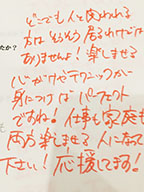 どこでも人と関われる
方はそうそう居るわけでは
たか？
ありませんよ！楽しませる
心がけやテクニックが
身につけばパーフェクト
ですね！仕事も家庭も
両方楽しませる人になって
下さい！応援してます！